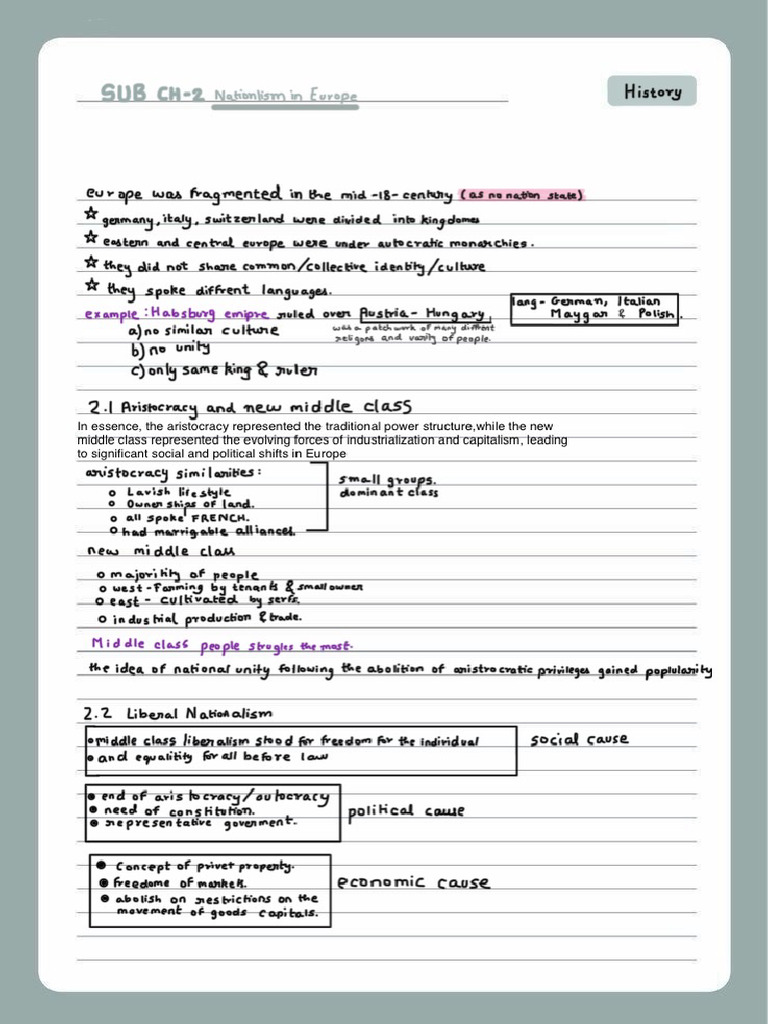 SUB CH-2 Nationlism in Europe
History
europe was fragmented in the mid -18- century (as no nation state)
☆ germany, italy, switzerland were divided into kingdomes
☆ eastern and central europe were under autocratic monarchies.
☆ they did not share common/collective identity/culture
☆ they spoke diffrent languages.
lang- German, Italian
Maygar & Polish.
example: Habsburg emipre ruled over Austria- Hungary
was a patchwork of many diffrent
religons and varity of people.
a) no similar culture
b) no unity
c) only same king & ruler
2.1 Aristocracy and new middle class
In essence, the aristocracy represented the traditional power structure,while the new
middle class represented the evolving forces of industrialization and capitalism, leading
to significant social and political shifts in Europe
aristocracy similarities:
o Lavish lifestyle
o Ownerships of land.
o all spoke FRENCH.
o had marrigable alliances.
small groups.
dominant class
new middle class
o majoritity of people
o west-farming by tenants & small owner
o east - cultivated by serfs.
o industrial production & trade.
Middle class people strugles the most.
the idea of national unity following the abolition of aristrocratic privileges gained poplularity
2.2 Liberal Nationalism
• middle class liberalism stood for freedom for the individual
• and equalitity for all before law
social cause
• end of aristocracy/autocracy
• need of constitution.
• representative goverment.
political cause
• Concept of privet property.
• freedome of markets.
• abolish on restrictions on the
movement of goods capitals.
economic cause